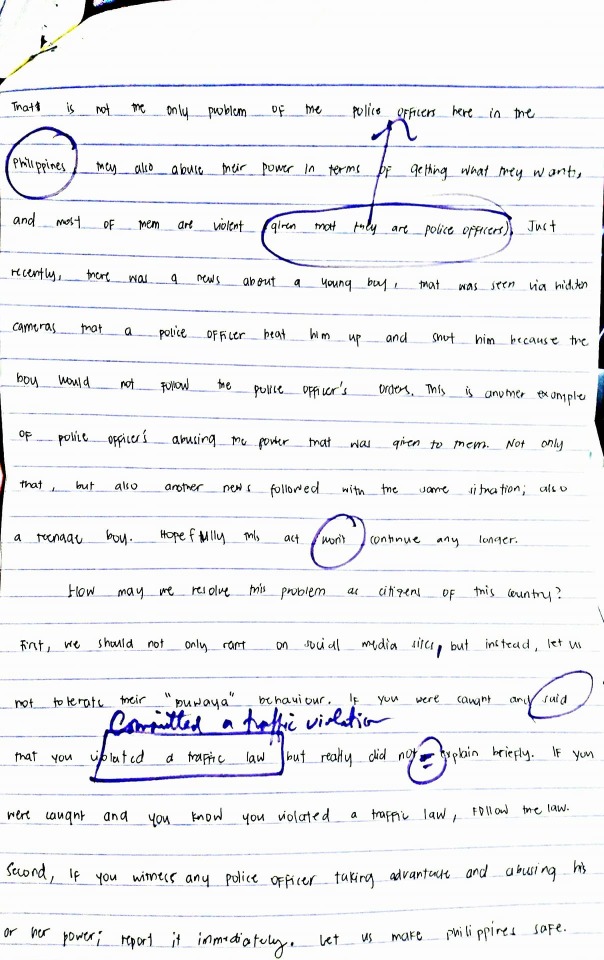 Thats is not the only problem of the police officers here in the
Philippines, they also abuse their power in terms of getting what they wants,
and most of them are violent (given that they are police officers). Just
recently, there was a news about a young boy, that was seen via hidden
cameras that a police officer beat him up and shot him because the
boy would not follow the police officer's orders. This is another example
of police officer's abusing the power that was given to them. Not only
that, but also another news followed with the same situation; also
a teenage boy. Hopefully this act won't continue any longer.
How may we resolve this problem as citizens of this country?
First, we should not only rant on social media sites, but instead, let us
not tolerate their "buwaya" behaviour. If you were caught and said
Committed a traffic violation
that you violated a traffic law but really did not explain briefly. If you
were caught and you know you violated a traffic law, follow the law.
Second, if you witness any police officer taking advantage and abusing his
or her power; report it immediately. Let us make philippines safe.